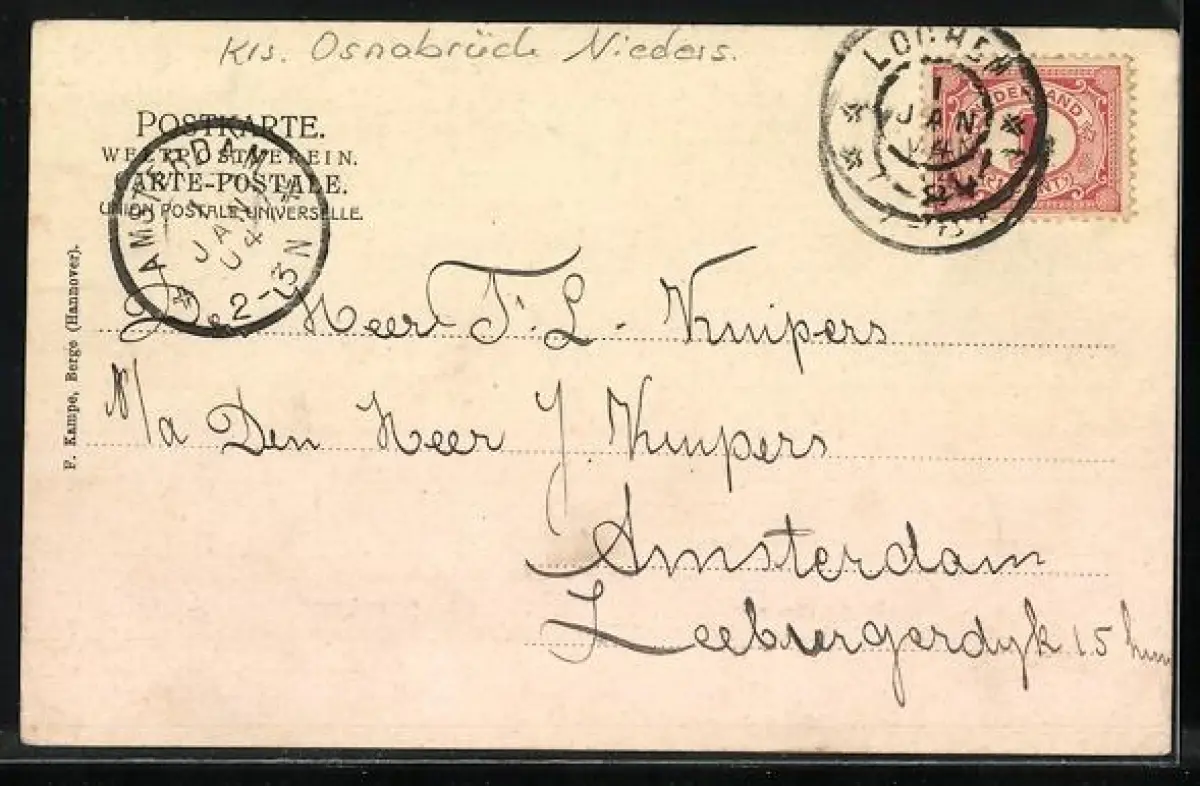 Krs. Osnabrück Nieders.
POSTKARTE.
WELTPOSTVEREIN.
CARTE-POSTALE.
UNION POSTALE UNIVERSELLE.
AMSTERDAM
1
JAN
04
2-3N
LOCHEM
1
JAN
NEDERLAND
CENT
F. Kampe, Berge (Hannover).
De Heer F. L. Kuipers
N/a Den Heer J. Kuipers
Amsterdam
Zeeburgerdyk 15